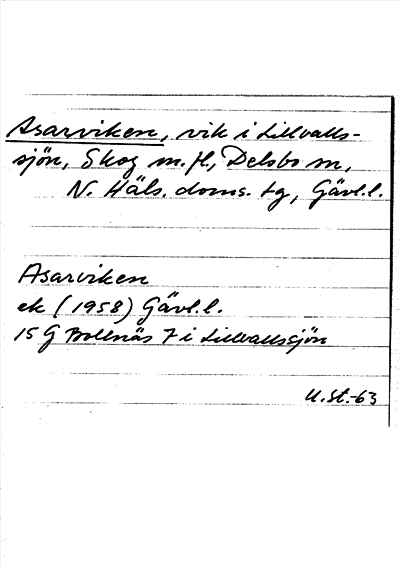 Asarviken, vik i Lillvalls-
sjön, Skog m.fl., Delsbo sn,
N. Häls. doms. tg, Gävl.l.
Asarviken
ek (1958) Gävl.l.
15 G Bollnäs 7 i Lillvallssjön
U.St.-63